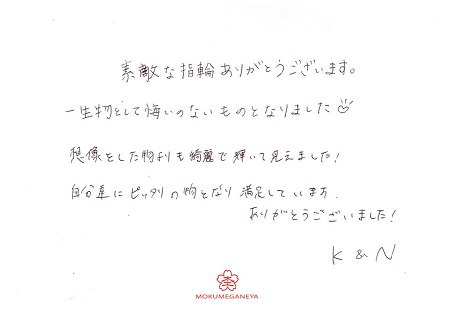 素敵な指輪ありがとうございます。
一生物として悔いのないものとなりました
想像をした物よりも綺麗で輝いて見えました!
自分達にピッタリの物となり満足しています.
ありがとうございました!
K & N
MOKUMEGANEYA